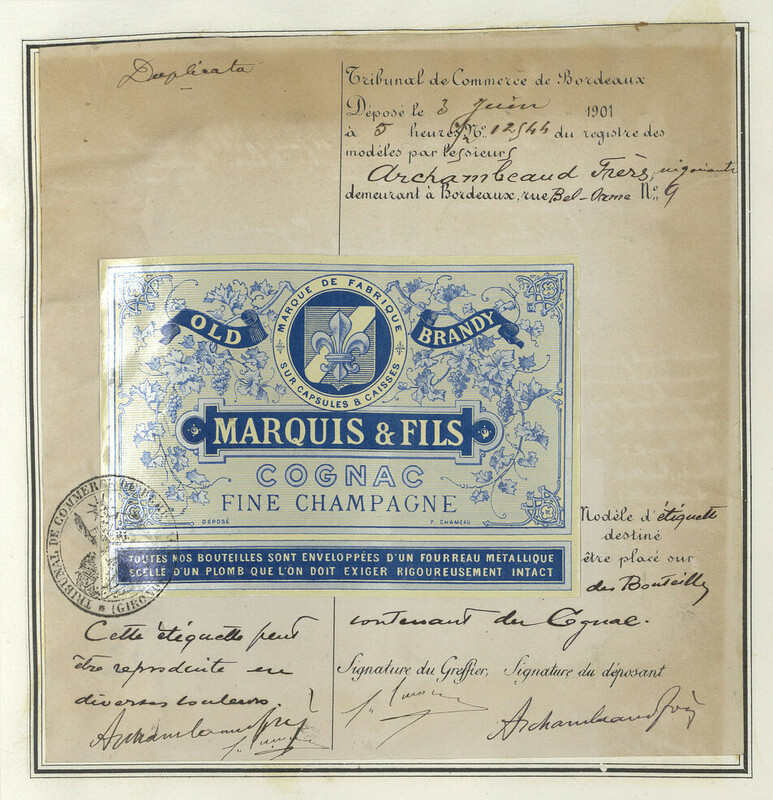 Duplicata
Tribunal de Commerce de Bordeaux
Déposé le 3 Juin 1901
à 5 heures ½ Nº 12544 du registre des
modèles par les sieurs
Archambeaud Frères, négociants
demeurant à Bordeaux, rue Bel-Orme Nº 9
OLD
MARQUE DE FABRIQUE
SUR CAPSULES & CAISSES
BRANDY
MARQUIS & FILS
COGNAC
FINE CHAMPAGNE
DEPOSÉ
F. CHAMEAU
TOUTES NOS BOUTEILLES SONT ENVELOPPÉES D'UN FOURREAU MÉTALLIQUE
SCELLÉ D'UN PLOMB QUE L'ON DOIT EXIGER RIGOUREUSEMENT INTACT
TRIBUNAL DE COMMERCE DE
(GIRONDE)
Modèle d'étiquette
destiné
être placé sur
des Bouteilles
contenant du Cognac.
Cette étiquette peut
être reproduite en
diverses couleurs.
Archambeaud frères
Signature du Greffier, Signature du déposant
Archambeaud frères